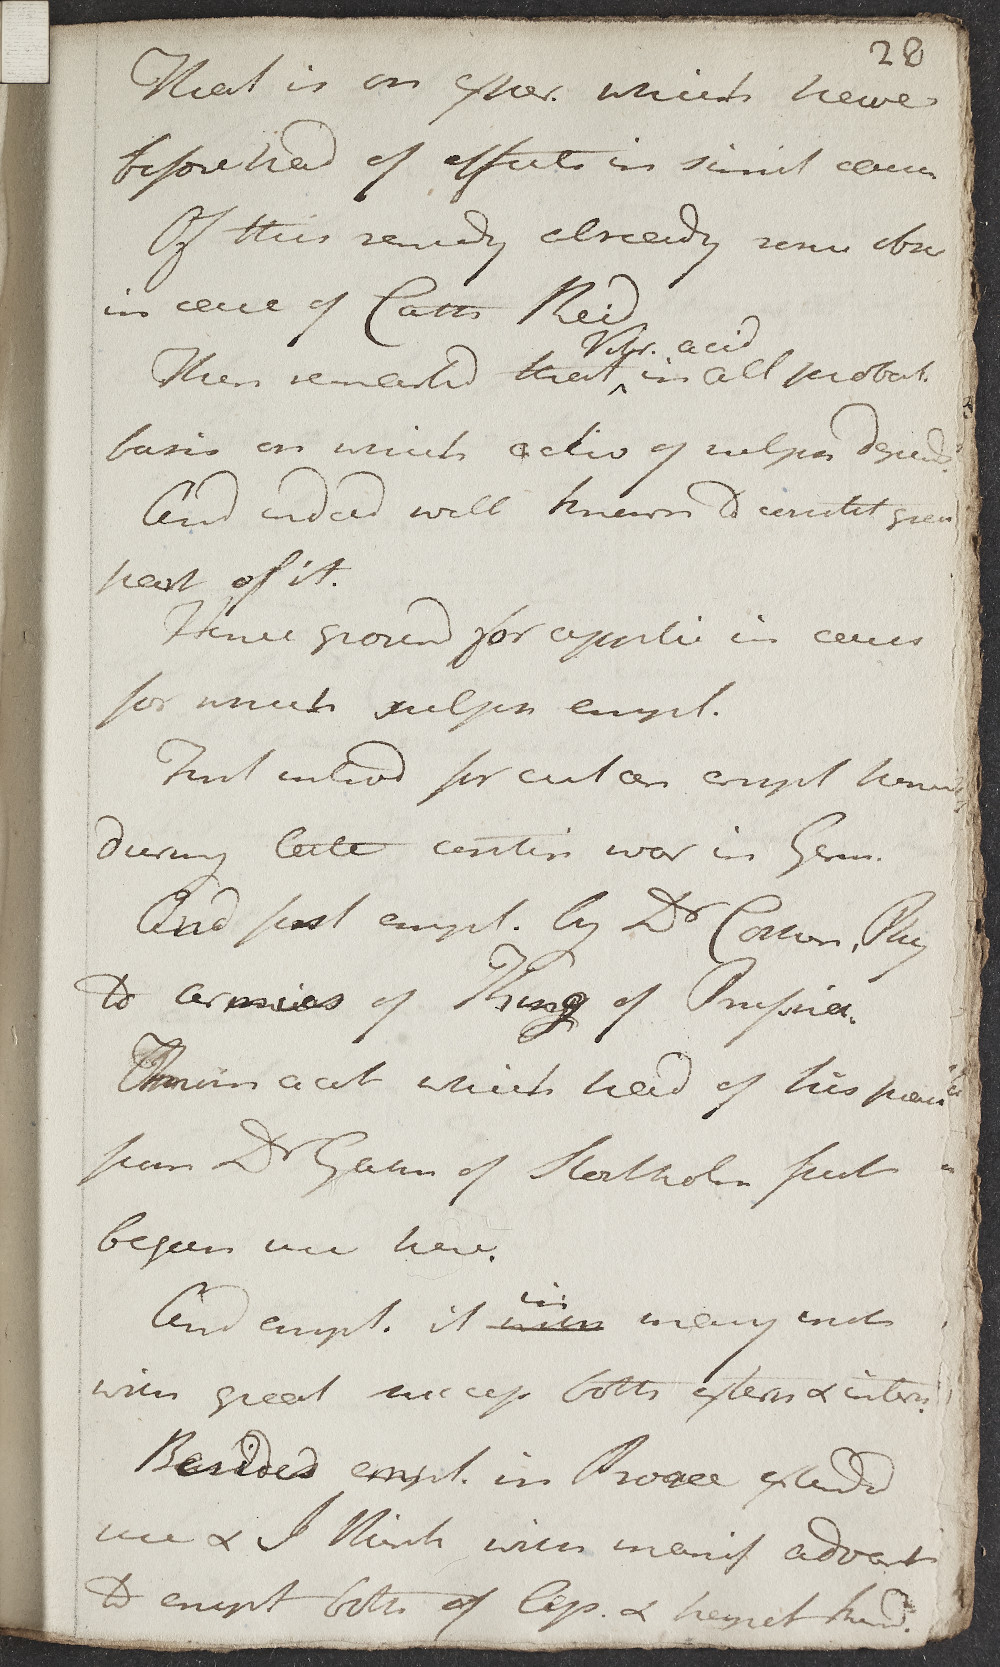 28
That is on exper. which have
beforehad of effects in simil cases
Of this remedy already some obs
in case of Cath Reid
Vitr. acid
Then remarked that ^ in all probab.
basis on which actio of sulphr depends.
And indeed well known to constit great
part of it.
Hence ground for applic in cases
for which sulphr empl.
First introd for cutan erupt
during late contin war in Germ.
And first empl. by Dr Phy
to armies of King of Prussia.
From acct which had of his
from Dr Gahn of Stockholm first
began use here.
And empl. it in many inst
with great success both extern & intern.
Besides empl. in Psorae extend
use & I think with manif advant
to erupt both of lep. & herpet kind.